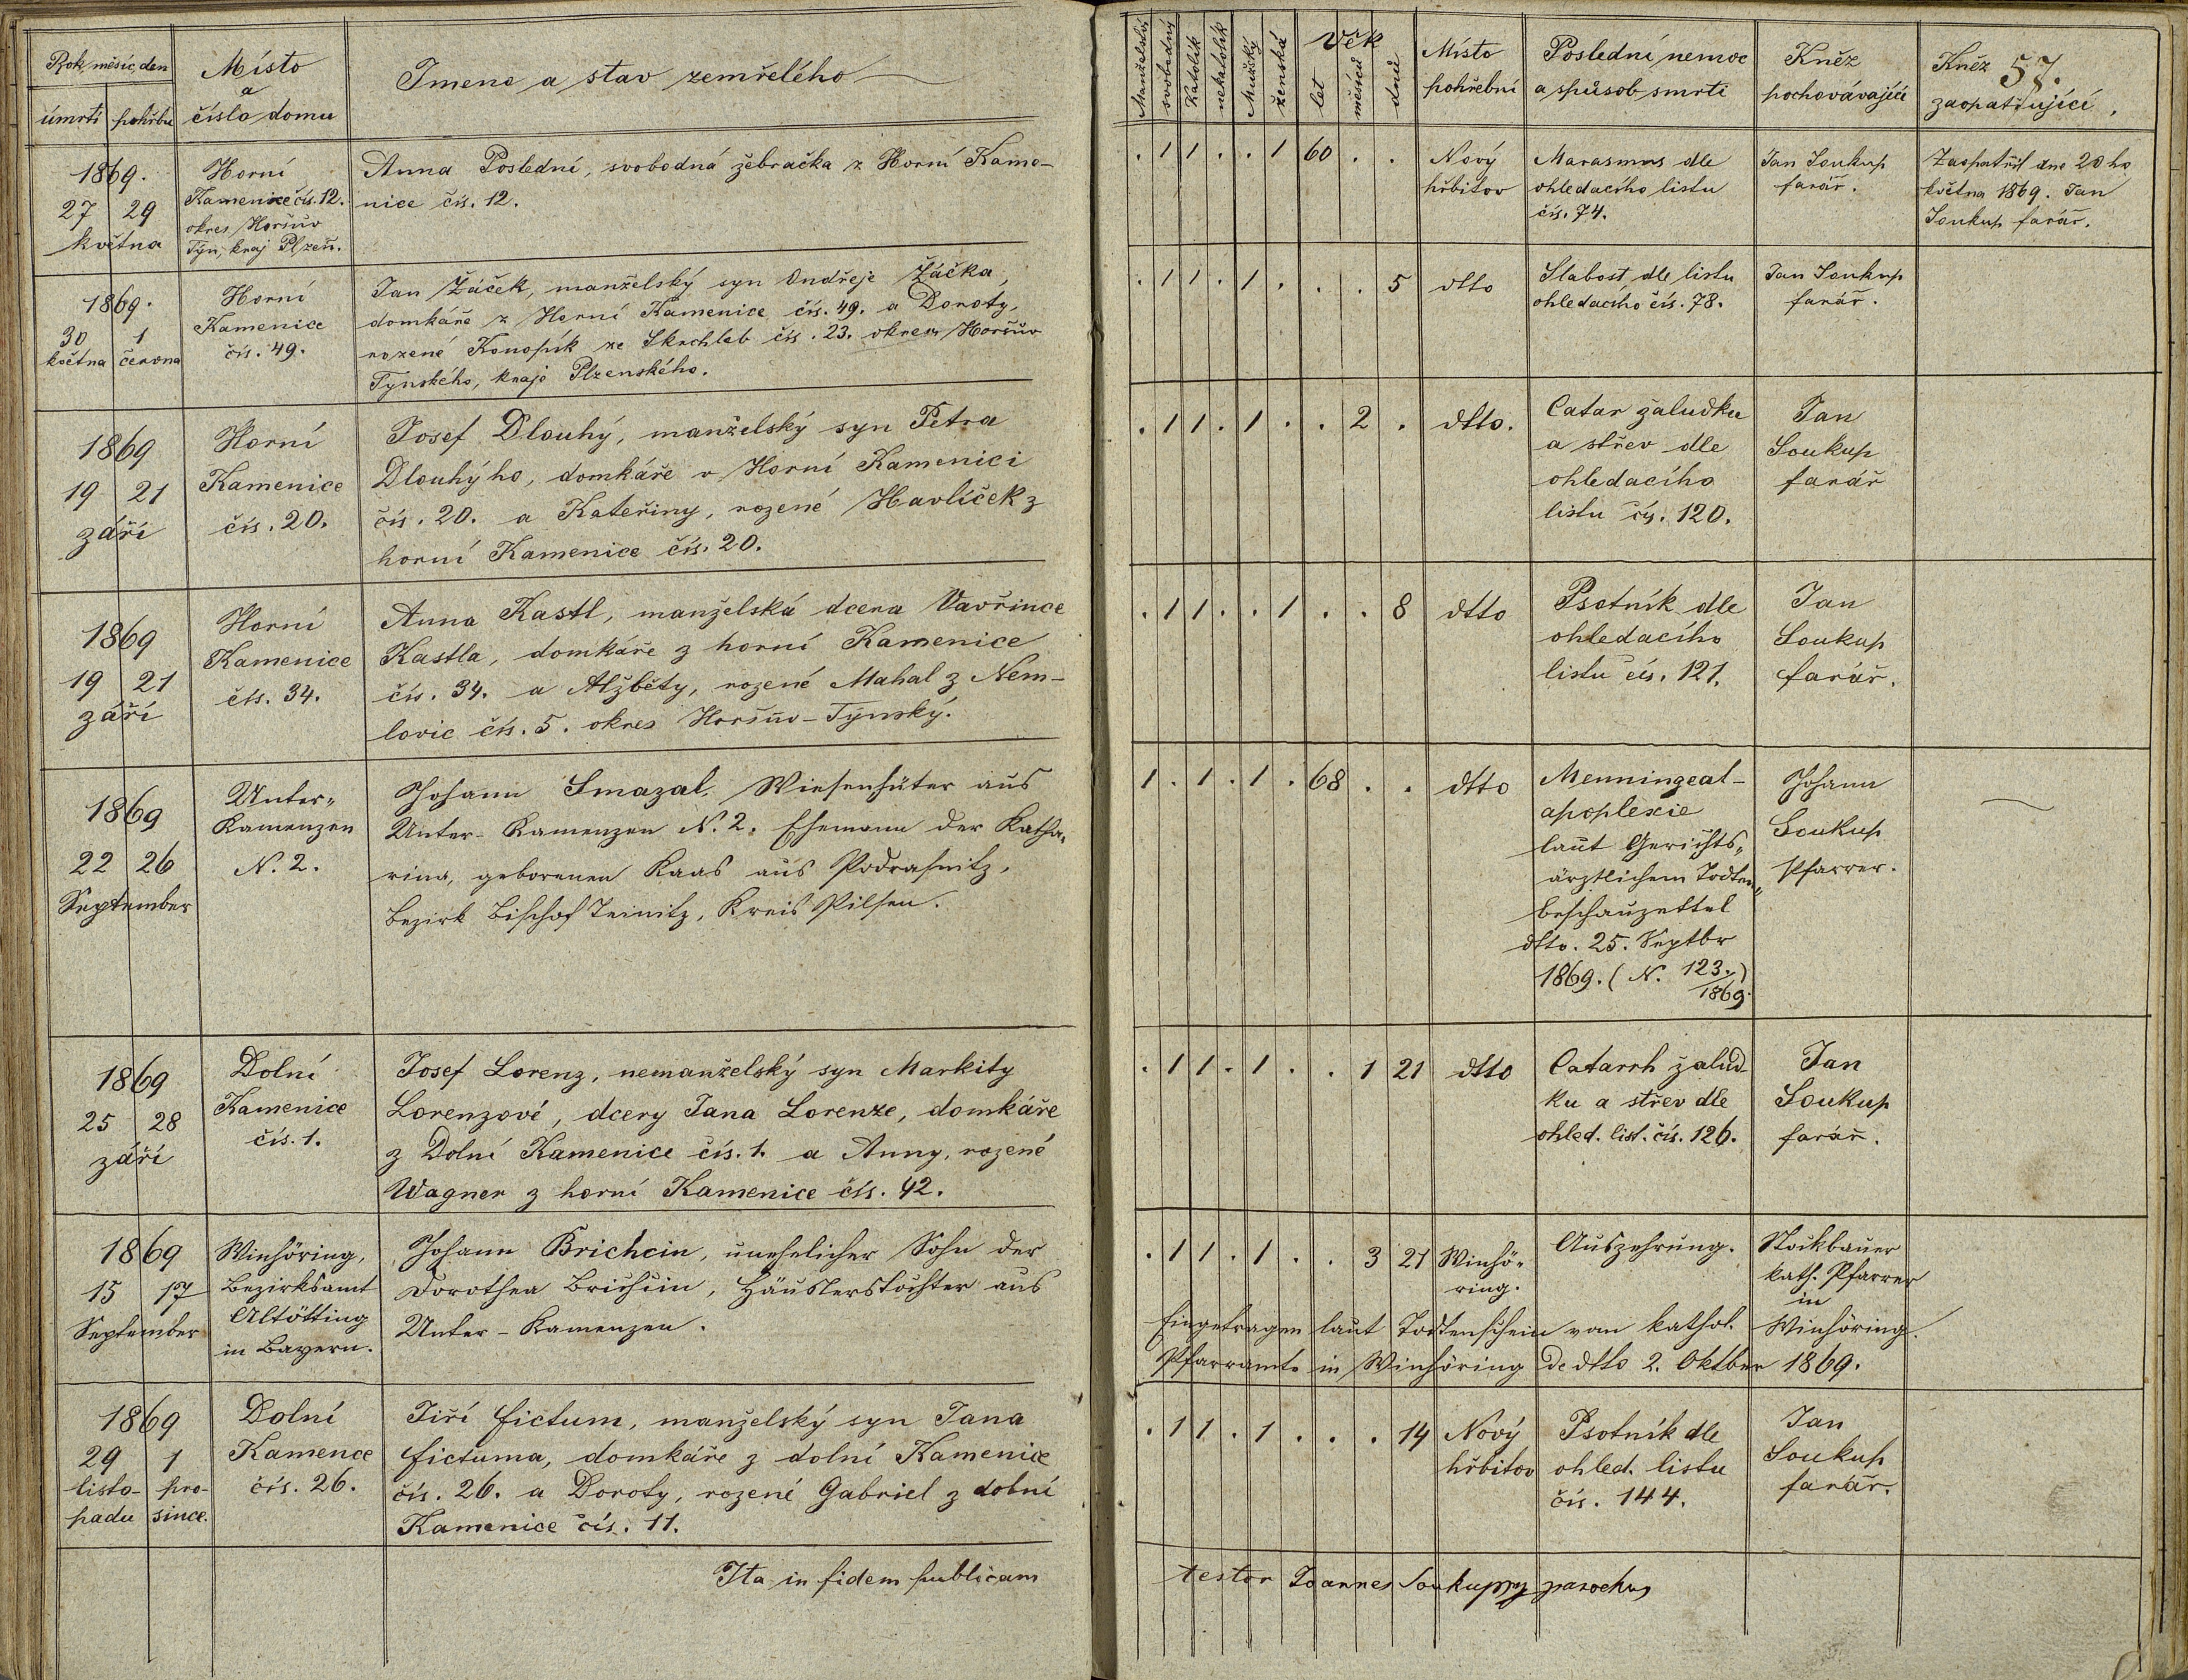 Rok, měsíc, den
úmrtí pohřbu
Místo
a
číslo domu
Jmeno a stav zemřelého
Manželský
svobodný
Katolík
nekatolík
Mužský
ženská
Věk
let
měsíců
dnů
Místo
pohřební
Poslední nemoc
a spůsob smrti
Kněz
pochovávající
Kněz 57.
zaopatřující.
1869.
27 29
května
Horní
Kamenice čís. 12.
okres Horšův
Týn, kraj Plzeň.
Anna Poslední, svobodná žebračka z Horní Kame-
nice čís. 12.
. 1 1 . . 1 60 . .
Nový
hřbitov
Marasmus dle
ohledacího listu
čís. 74.
Jan Soukup
farář.
Zaopatřil dne 20ho
května 1869. Jan
Soukup farář.
1869.
30 1
května června
Horní
Kamenice
čís. 49.
Jan Žáček, manželský syn Ondřeje Žáčka,
domkáře z Horní Kamenice čís. 49. a Doroty,
rozené Konopík ze Skrchleb čís. 23. okresu Horšův
Týnského, kraje Plzenského.
. 1 1 . 1 . . . 5
dtto
Slabost, dle listu
ohledacího čís. 78.
Jan Soukup
farář.
1869
19 21
září
Horní
Kamenice
čís. 20.
Josef Dlouhý, manželský syn Petra
Dlouhýho, domkáře v Horní Kamenici
čís. 20. a Kateřiny, rozené Havlíček z
horní Kamenice čís. 20.
. 1 1 . 1 . . 2 .
dtto.
Catar žaludku
a střev dle
ohledacího
listu čís. 120.
Jan
Soukup
farář
1869
19 21
září
Horní
Kamenice
čís. 34.
Anna Kastl, manželská dcera Vavřince
Kastla, domkáře z horní Kamenice
čís. 34. a Alžběty, rozené Mahal z Nem-
lovic čís. 5. okres Horšův-Týnský.
. 1 1 . . 1 . . 8
dtto
Psotník dle
ohledacího
listu čís. 121.
Jan
Soukup
farář.
1869
22 26
September
Unter-
Kamenzen
N. 2.
Johann Smazal, Wiesenhüter aus
Unter-Kamenzen N. 2. Ehemann der Katha-
rina, geborenen Kaas aus Podrasnitz,
Bezirk Bischof Teinitz, Kreis Pilsen.
1 . 1 . 1 . 68 . .
dtto
Menningeal-
apoplexie
laut Gerichts-
ärztlichem Todten-
beschauzettel
dtto. 25. Septbr
1869. (N. 123./1869.)
Johann
Soukup
Pfarrer.
1869
25 28
září
Dolní
Kamenice
čís. 1.
Josef Lorenz, nemanželský syn Markity
Lorenzové, dcery Jana Lorenze, domkáře
z Dolní Kamenice čís. 1. a Anny, rozené
Wagner z horní Kamenice čís. 42.
. 1 1 . 1 . . 1 21
dtto
Catarrh žalud-
ku a střev dle
ohled. list. čís. 126.
Jan
Soukup
farář.
1869
15 17
September
Winhöring,
Bezirksamt
Altötting
in Bayern.
Johann Brichcin, unehelicher Sohn der
Dorothea Brichcin, Häuslerstochter aus
Unter-Kamenzen.
. 1 1 . 1 . . 3 21
Winhö-
ring.
Auszehrung.
Stockbauer
kath. Pfarrer
in
Winhöring.
Eingetragen laut Todtenschein vom kathol.
Pfarramte in Winhöring de dtto 2. Oktber 1869.
1869
29 1
listo- pro-
padu since.
Dolní
Kamence
čís. 26.
Jiří Fictum, manželský syn Jana
Fictuma, domkáře z dolní Kamenice
čís. 26. a Doroty, rozené Gabriel z dolní
Kamenice čís. 11.
. 1 1 . 1 . . . 14
Nový
hřbitov
Psotník dle
ohled. listu
čís. 144.
Jan
Soukup
farář.
Ita in fidem publicam
testor Joannes Soukup parochus